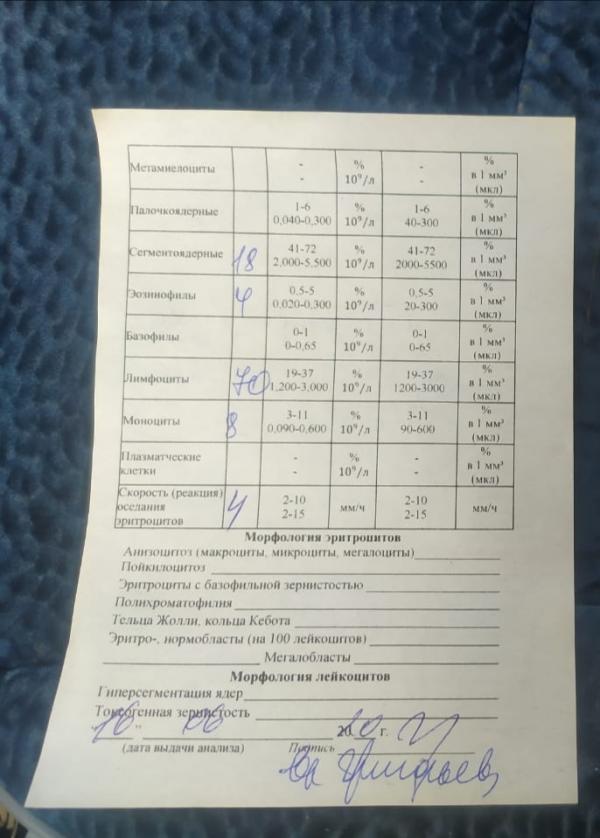 Метамиелоциты - - % 10⁹/л - - % в 1 мм³ (мкл)
Палочкоядерные 1-6 0,040-0,300 % 10⁹/л 1-6 40-300 % в 1 мм³ (мкл)
Сегментоядерные 18 41-72 2,000-5.500 % 10⁹/л 41-72 2000-5500 % в 1 мм³ (мкл)
Эозинофилы 4 0,5-5 0,020-0,300 % 10⁹/л 0,5-5 20-300 % в 1 мм³ (мкл)
Базофилы 0-1 0-0,65 % 10⁹/л 0-1 0-65 % в 1 мм³ (мкл)
Лимфоциты 70 19-37 1,200-3,000 % 10⁹/л 19-37 1200-3000 % в 1 мм³ (мкл)
Моноциты 8 3-11 0,090-0,600 % 10⁹/л 3-11 90-600 % в 1 мм³ (мкл)
Плазматческие клетки - - % 10⁹/л - - % в 1 мм³ (мкл)
Скорость (реакция) оседания эритроцитов 4 2-10 2-15 мм/ч 2-10 2-15 мм/ч
Морфология эритроцитов
Анизоцитоз (макроциты, микроциты, мегалоциты)
Пойкилоцитоз
Эритроциты с базофильной зернистостью
Полихроматофилия
Тельца Жолли, кольца Кебота
Эритро-, нормобласты (на 100 лейкоцитов)
Мегалобласты
Морфология лейкоцитов
Гиперсегментация ядер
Токсогенная зернистость
"16" 06 2020 г.
(дата выдачи анализа) Подпись
Григорьев